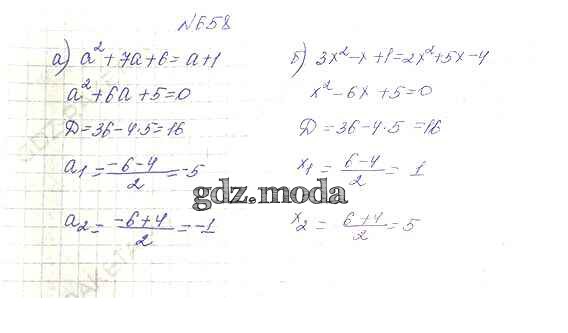 №658
а) a² + 7a + 6 = a + 1
a² + 6a + 5 = 0
D = 36 - 4·5 = 16
a₁ = (-6-4)/2 = -5
a₂ = (-6+4)/2 = -1
б) 3x² - x + 1 = 2x² + 5x - 4
x² - 6x + 5 = 0
D = 36 - 4·5 = 16
x₁ = (6-4)/2 = 1
x₂ = (6+4)/2 = 5
gdz.moda